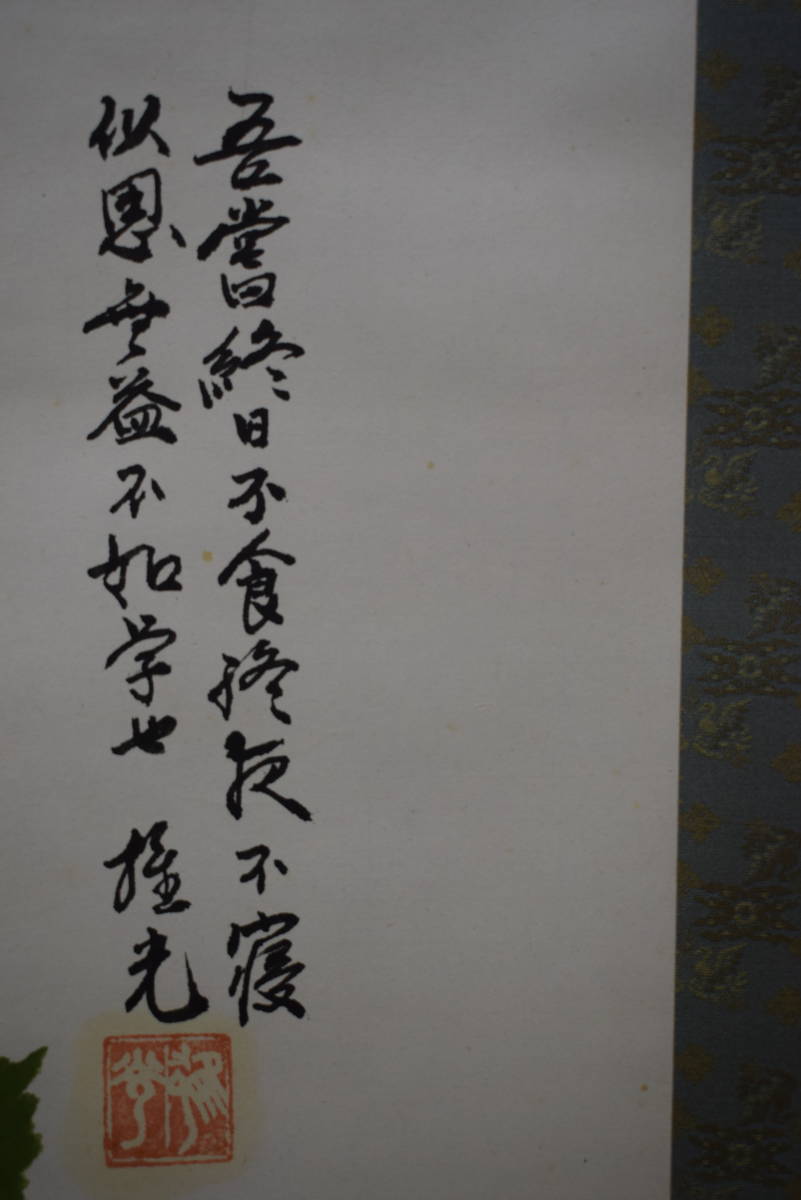 吾嘗終日不食終夜不寝
以思無益不如学也 推光